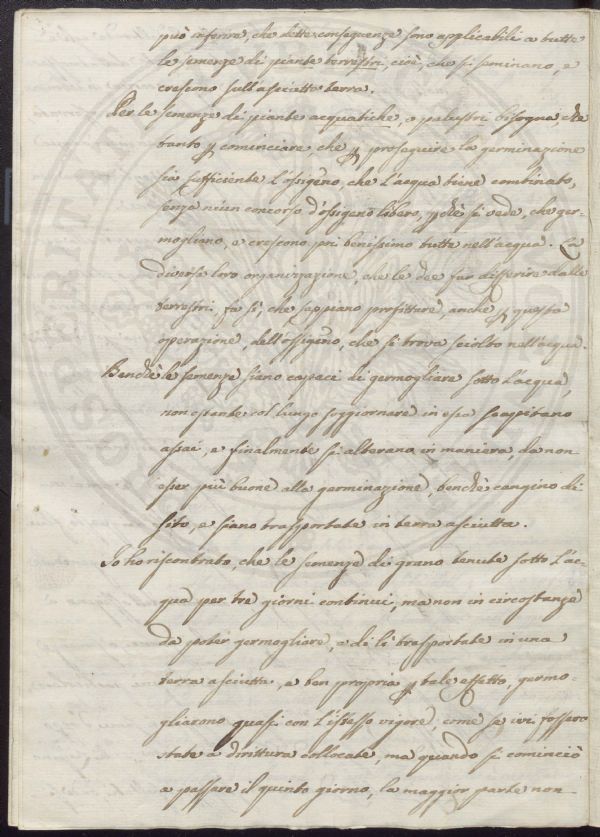 può inferire, che dette conseguenze sono applicabili a tutte
le semenze di piante terrestri, cioè, che si seminano, e
crescono sull'asciutta terra.
Per le semenze di piante acquatiche, o palustri bisogna, che
tanto p cominciare, che p proseguire la germinazione
sia sufficiente l'ossigeno, che l'acqua tiene combinato,
senza niun concorso d'ossigeno libero, p chè si vede, che ger-
mogliano, e crescono poi benissimo tutte nell'acqua. La
diversa loro organizzazione, che le dee far differire dalle
terrestri, fa sì, che sappiano profittare, anche p questa
operazione, dell'ossigeno, che si trova sciolto nell'acqua.
Bendiè le semenze siano capaci di germogliare sotto l'acqua,
non ostante col lungo soggiornare in essa scapitano
assai, e finalmente si alterano in maniera, da non
esser più buone alla germinazione, benchè cangino di
sito, e siano trasportate in terra asciutta.
Io ho riscontrato, che le semenze di grano tenute sotto l'ac-
qua per tre giorni continui, ma non in circostanze
da poter germogliare, e di lì trasportate in una
terra asciutta, e ben propria p tale effetto, germo-
gliarono quasi con l'istesso vigore, come se ivi fossero
state a dirittura collocate, ma quando si cominciò
a passare il quinto giorno, la maggior parte non-
PROSPERITAS